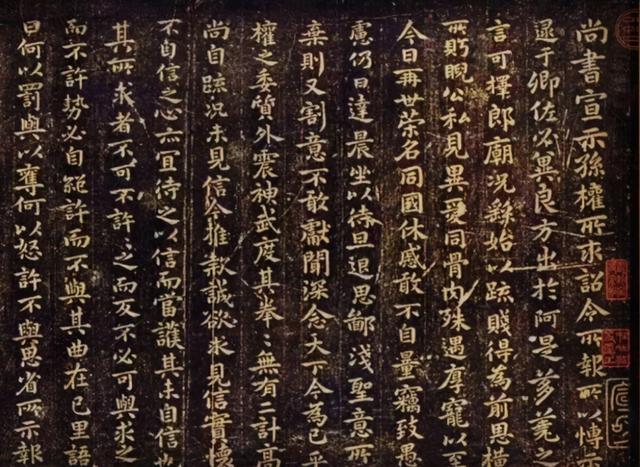 尚書宣示孫權所求詔令所報所以博示
逮于卿佐必冀良方出於阿是芻蕘之
言可擇郎廟況繇始以疏賤得為前恩橫
所盱睨公私見異愛同骨肉殊遇厚寵以至
今日再世榮名同國休慼敢不自量竊致愚
慮仍日達晨坐以待旦退思鄙淺聖意所
棄則又割意不敢獻聞深念天下今為已平
權之委質外震神武度其拳〻無有二計高
尚自疏況未見信今推款誠欲求見信實懷
不自信之心亦宜待之以信而當護其未自信也
其所求者不可不許〻之而反不必可與求之
而不許勢必自絕許而不與其曲在己里語
曰何以罰與以奪何以怒許不與思省所示報